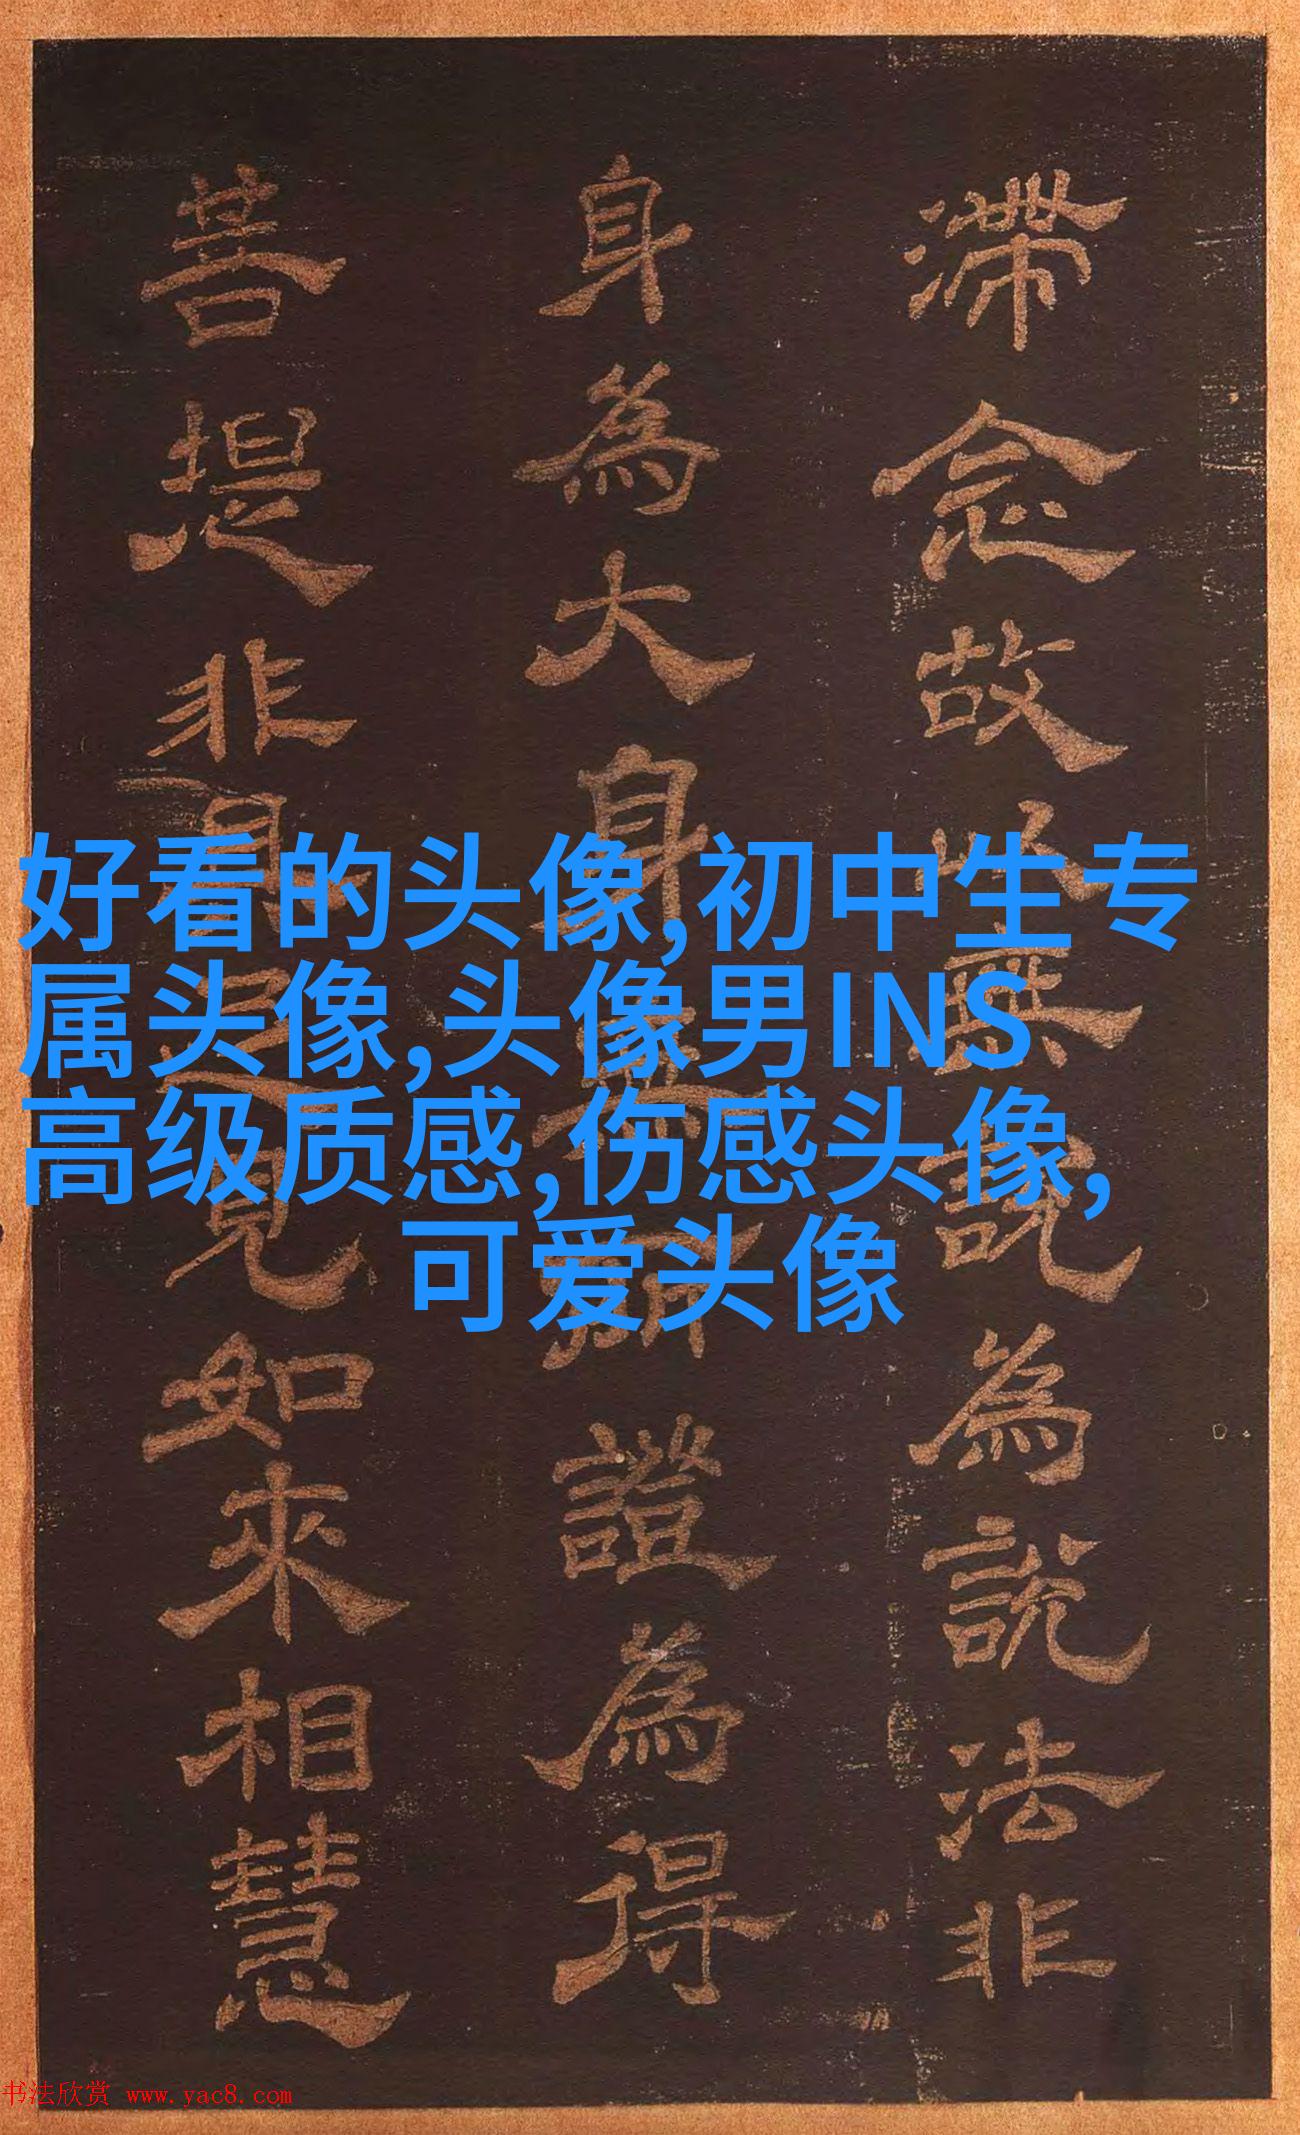 滯念故以無說為說法非
身為大身無所證為得
菩提非見如來相慧
好看的头像,初中生专
属头像,头像男INS
高级质感,伤感头像,
可爱头像
书法欣赏 www.yac8.com